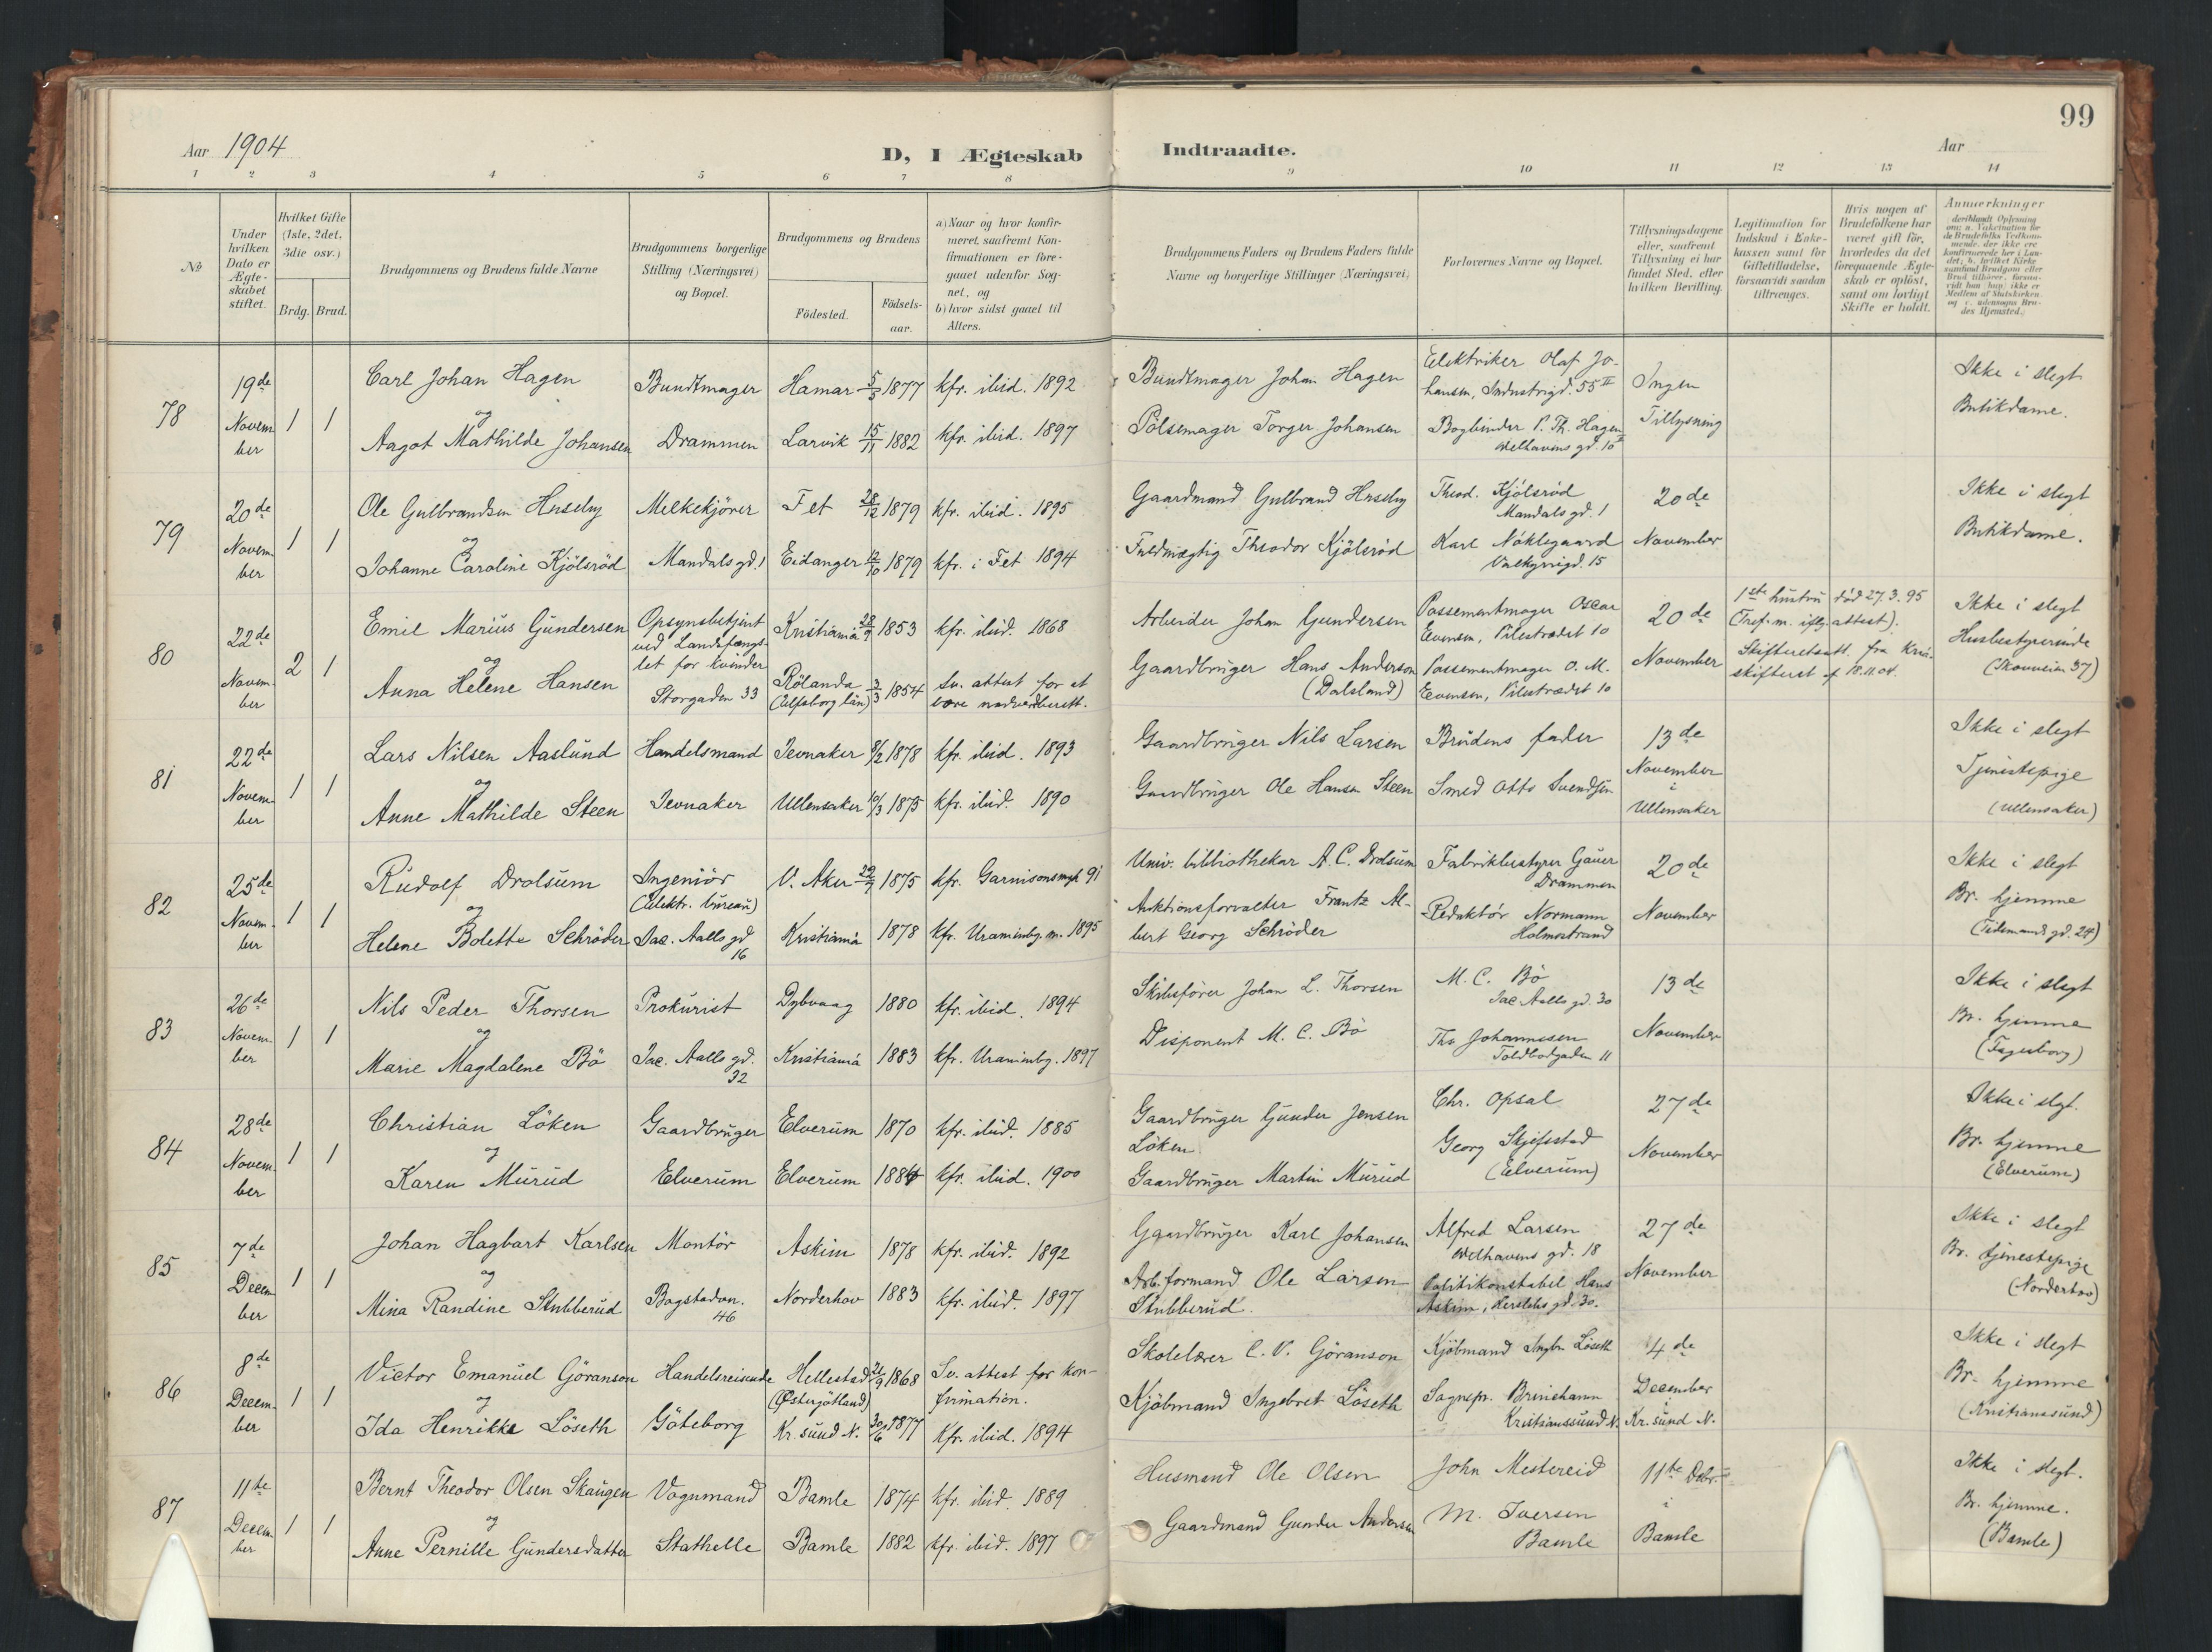 99
Aar 1904
D, I Ægteskab Indtraadte.
Aar
1 2 3 4 5 6 7 8 9 10 11 12 13 14
No
Under hvilken Dato er Ægteskabet stiftet.
Hvilket Gifte (1ste, 2det, 3die osv.)
Brdg. Brud.
Brudgommens og Brudens fulde Navne
Brudgommens borgerlige Stilling (Næringsvei) og Bopæl.
Brudgommens og Brudens
Fødested.
Fødsels-aar.
a) Naar og hvor konfirmeret, saafremt Konfirmationen er foregaaet udenfor Sognet, og
b) hvor sidst gaaet til Alters.
Brudgommens Faders og Brudens Faders fulde Navne og borgerlige Stillinger (Næringsvei)
Forlovernes Navne og Bopæl.
Tillysningsdagene eller, saafremt Tillysning ei har fundet Sted, efter hvilken Bevilling.
Legitimation for Indskud i Enkekassen samt for Giftetilladelse, forsaavidt saadan tiltrænges.
Hvis nogen af Brudefolkene har været gift før, hvorledes da det foregaaende Ægteskab er opløst, samt om lovligt Skifte er holdt.
Anmerkninger
78 19de November 1 1
Carl Johan Hagen Bundtmager Hamar 5/5 1877 kfr. ibid. 1892
og
Aagot Mathilde Johansen Drammen Larvik 15/11 1882 kfr. ibid. 1897
Bundtmager Johan Hagen Elektriker Olaf Johansen, Industrigd. 55 II Ingen Ikke i slegt
Pölsemager Torger Johansen Bogbinder P. Th. Hagen Welhavens gd. 10 Tillysning Butikdame.
79 20de November 1 1
Ole Gulbrandsen Huseby Melkekjörer Fet 28/12 1879 kfr. ibid. 1895
og
Johanne Caroline Kjölsröd Mandals gd. 1 Eidanger 12/10 1879 kfr. i Fet 1894
Gaardmand Gulbrand Huseby Theod. Kjölsröd Mandals gd. 1 20de Ikke i slegt
Fuldmægtig Theodor Kjölsröd Karl Nöklegaard Valkyrigd. 15 November Butikdame.
80 22de November 2 1
Emil Marius Gundersen Opsynsbetjent ved Landsfængslet for kvinder Kristiania 28/9 1853 kfr. ibid. 1868
og
Anna Helene Hansen Storgaden 33 Rölanda (Elfsborg län) 3/3 1854 Sv. attest for at være nadverberett.
Arbeider Johan Gundersen Possementmager Oscar Evensen, Pilestrædet 10 20de 1ste hustru död 27.3.95 (Tref. m. iflg. attest). Ikke i slegt
Gaardbruger Hans Anderson (Dalsland) Possementmager O. M. Evensen, Pilestrædet 10 November Skifteretsatt. fra Kria. skifteret af 18.11.04. Husbestyrerinde (Skovveien 37)
81 22de November 1 1
Lars Nilsen Aaslund Handelsmand Jevnaker 8/2 1878 kfr. ibid. 1893
og
Anne Mathilde Steen Jevnaker Ullensaker 10/3 1875 kfr. ibid. 1890
Gaardbruger Nils Larsen Brudens fader 13de Ikke i slegt
Gaardbruger Ole Hansen Steen Smed Otto Svendsen November i Ullensaker Tjenestepige (Ullensaker)
82 25de November 1 1
Rudolf Drolsum Ingeniör (Elektr. bureau) V. Aker 29/7 1875 kfr. Garnisonsmgh 91
og
Helene Bolette Schröder Jac. Aalls gd 16 Kristiania 1878 kfr. Uranienbg. m. 1895
Univ. bibliothekar A. C. Drolsum Fabrikbestyrer Gauer Drammen 20de Ikke i slegt
Auktionsforvalter Frantz Albert Georg Schröder Redaktör Normann Holmestrand November Br. hjemme (Tidemands gd. 24)
83 26de November 1 1
Nils Peder Thorsen Prokurist Dybvaag 1880 kfr. ibid. 1894
og
Marie Magdalene Bö Jac. Aalls gd. 32 Kristiania 1883 kfr. Uranienbg. 1897
Skibsförer Johan L. Thorsen M. C. Bö Jac Aalls gd. 30 13de Ikke i slegt
Disponent M. C. Bö Th. Johannessen Toldbodgaden 11 November Br. hjemme (Fagerborg)
84 28de November 1 1
Christian Löken Gaardbruger Elverum 1870 kfr. ibid. 1885
og
Karen Murud Elverum Elverum 1884 kfr. ibid. 1900
Gaardbruger Gunder Jensen Löken Chr. Opsal 27de Ikke i slegt.
Gaardbruger Martin Murud Georg Skjefstad (Elverum) November Br. hjemme (Elverum)
85 7de December 1 1
Johan Hagbart Karlsen Montör Askim 1878 kfr. ibid. 1892
og
Mina Randine Stubberud Bogstadvn. 46 Norderhov 1883 kfr. ibid. 1897
Gaardbruger Karl Johansen Alfred Larsen Welhavens gd. 18 27de Ikke i slegt
Arb. formand Ole Larsen Stubberud. Politikonstabel Hans Askim, Herslebs gd. 30. November Br. tjenestepige (Norderhov)
86 8de December 1 1
Victor Emanuel Göranson Handelsreisende Hellestad (Östergötland) 21/9 1868 Sv. attest for konfirmation.
og
Ida Henrikke Löseth Göteborg Kr. sund N. 30/6 1877 kfr. ibid. 1894
Skolelærer C. V. Göranson Kjöbmand Ingbr. Löseth 4de Ikke i slegt
Kjöbmand Ingebret Löseth Sognepr. Brinchann Kristianssund N. December Kr. sund N. Br. hjemme (Kristianssund)
87 11te December 1 1
Bernt Theodor Olsen Skaugen Vognmand Bamle 1874 kfr. ibid. 1889
og
Anne Pernille Gundersdatter Stathelle Bamle 1882 kfr. ibid. 1897
Husmand Ole Olsen John Mestereid 11te Decbr. Ikke i slegt.
Gaardmand Gunder Andersen M. Iversen Bamle i Bamle Br. hjemme. (Bamle)